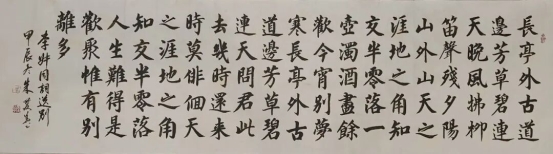 長亭外古道
邊芳草碧連
天晚風拂柳
笛聲殘夕陽
山外山天之
涯地之角知
交半零落一
壺濁酒盡餘
歡今宵別夢
寒長亭外古
道邊芳草碧
連天問君此
去幾時還來
時莫徘徊天
之涯地之角
知交半零落
人生難得是
歡聚惟有別
離多
李叔同詞送別
甲辰